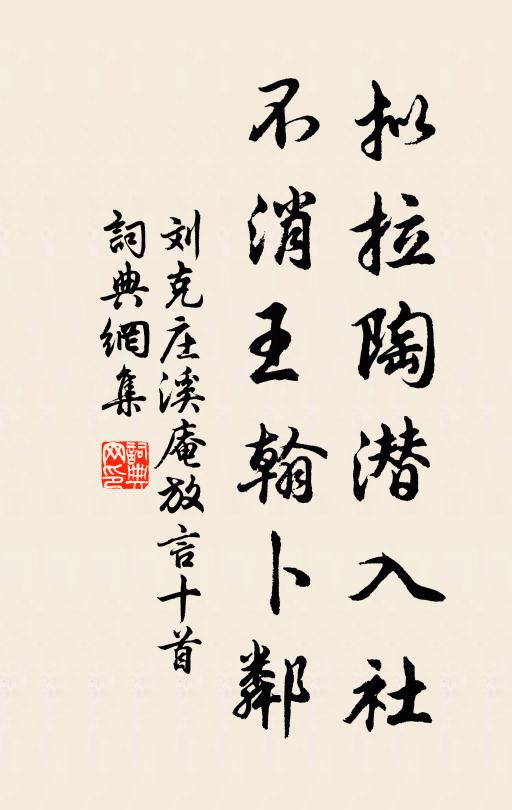 拟拉陶潜入社
不消王翰卜鄰
刘克庄溪庵放言十首
詞典網集
詞典網印